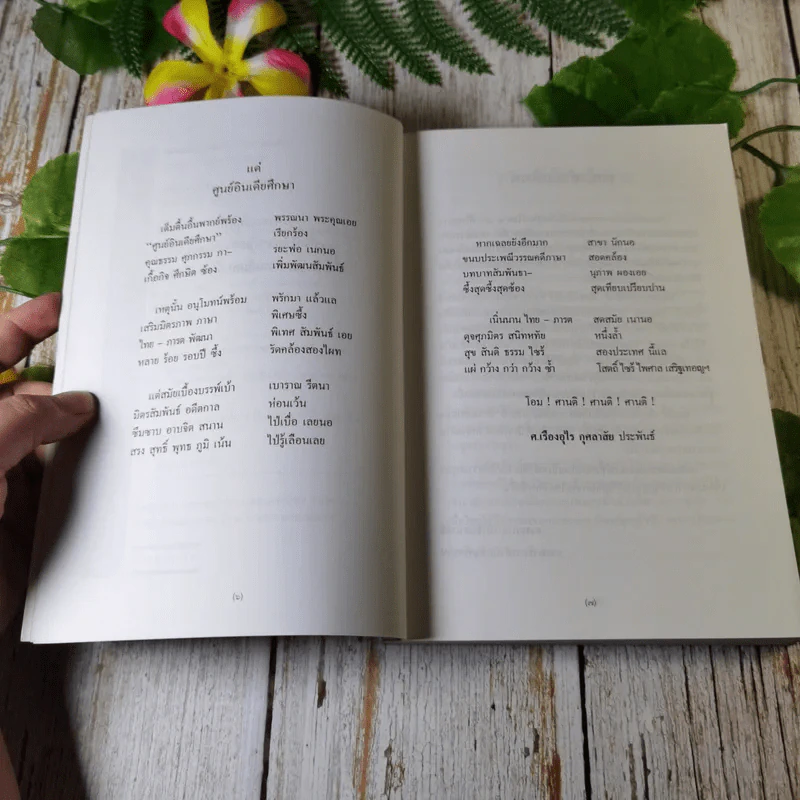 แด่
ศูนย์อินเดียศึกษา
เต็มตื้นอื้นพากย์พร้อง พรรณนา พระคุณเอย
"ศูนย์อินเดียศึกษา" เรียกร้อง
คุณธรรม ศุภกรรม กา– รยะพ่อ เนกนอ
เกื้อกิจ ศึกษิต ซ้อง เพิ่มพัฒนสัมพันธ์
เหตุนั่น อนุโมทน์พร้อม พรักมา แล้วแล
เสริมมิตรภาพ ภาษา พิเศษซึ้ง
ไทย – ภารต พัฒนา พิเทศ สัมพันธ์ เอย
หลาย ร้อย รอบปี ซึ้ง รัดคล้องสองไผท
แต่สมัยเบื้องบรรพ์เบ้า เบาราณ รีตนา
มิตรสัมพันธ์ อดีตกาล ห่อนเว้น
ซึมซาบ อาบจิต สนาน ไป่เบื่อ เลยนอ
สรง สุทธิ์ พุทธ ภูมิ เน้น ไป่รู้เลือนเลย
(๖)
หากเฉลยยังอีกมาก สาขา นักนอ
ขนบประเพณีวรรณคดีภาษา สอดคล้อง
บทบาทสัมพันธา– นุภาพ ผองเอย
ซึ้งสุดซึ้งสุดซ้อง สุดเทียบเปรียบปาน
เนิ่นนาน ไทย – ภารต สดสมัย เนานอ
ดุจศุภมิตร สนิทหทัย หนึ่งล้ำ
สุข สันติ ธรรม ไซร้ สองประเทศ นี้แล
แผ่ กว้าง กว่า กว้าง ซ้ำ โสตถิ์ ไซร้ ไพศาล เสริฐเทอญฯ
โอม ! ศานติ ! ศานติ ! ศานติ !
ศ.เรืองอุไร กุศลาสัย ประพันธ์
(๗)